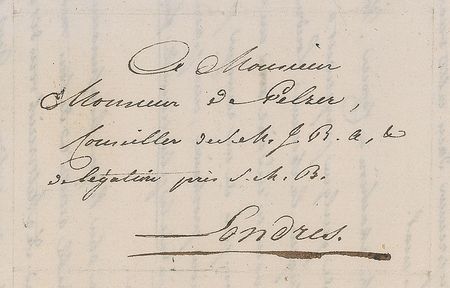 A Monsieur
Monsieur de Pelzer,
Conseiller de S. M. J. R. A. &
de légation près S. M. B.
Londres.